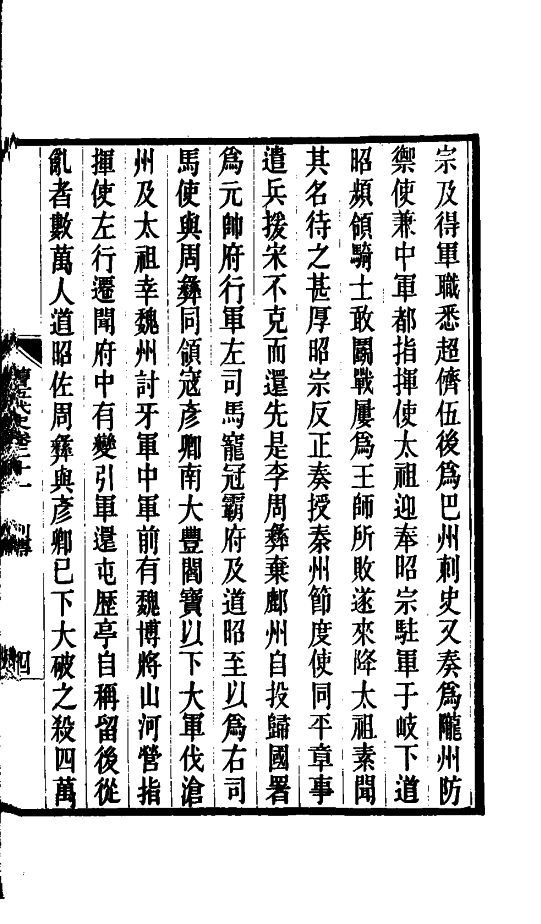 宗及得軍職悉超儕伍後爲巴州刺史又奏爲隴州防
禦使兼中軍都指揮使太祖迎奉昭宗駐軍于岐下道
昭頻領騎士敢鬭戰屢爲王師所敗遂來降太祖素聞
其名待之甚厚昭宗反正奏授秦州節度使同平章事
遣兵援宋不克而還先是李周彝棄鄜州自投歸國署
爲元帥府行軍左司馬寵冠霸府及道昭至以爲右司
馬使與周彝同領寇彥卿南大豐閻寶以下大軍伐滄
州及太祖幸魏州討牙軍中軍前有魏博將山河營指
揮使左行遷聞府中有變引軍還屯歷亭自稱留後從
亂者數萬人道昭佐周彝與彥卿已下大破之殺四萬
舊五代史卷二十一 列傳 四